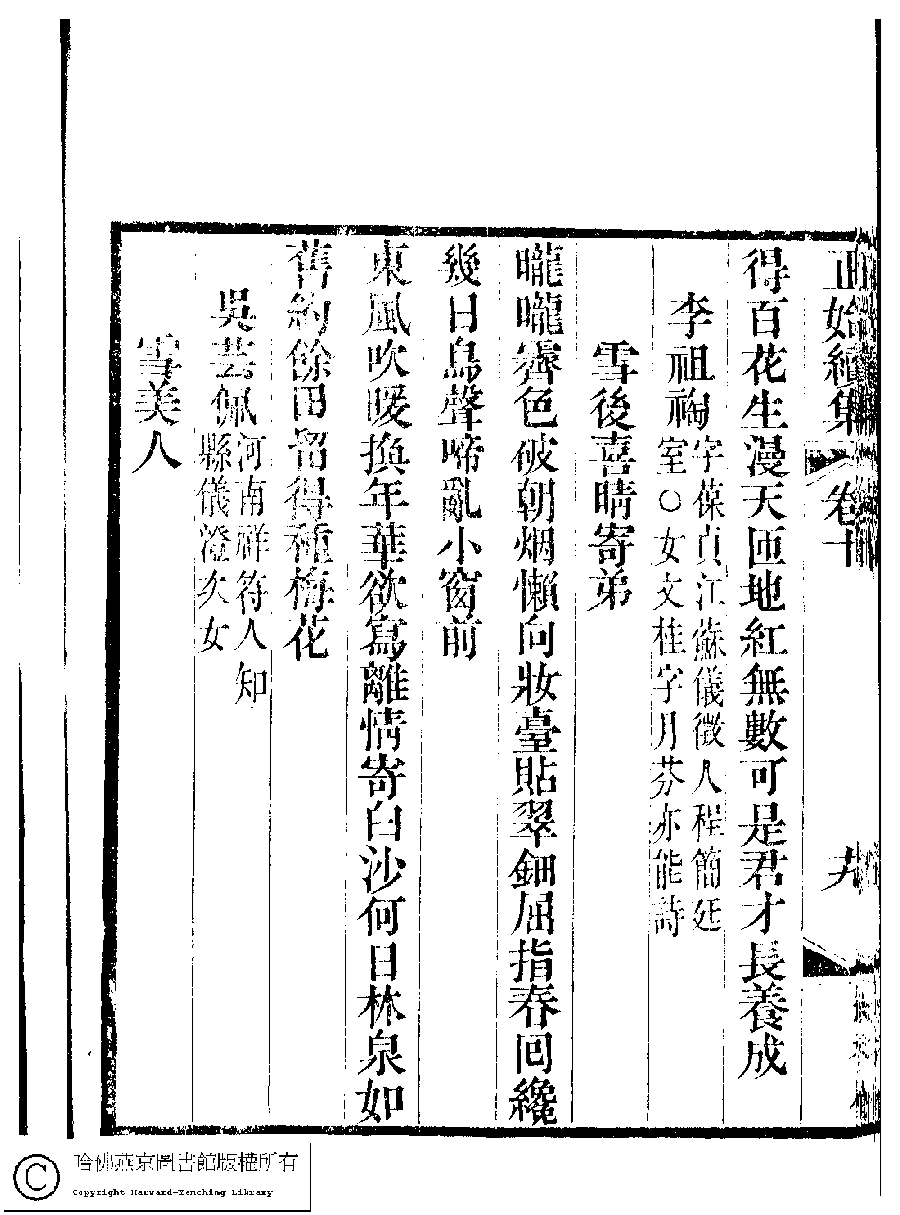 正始續集 卷十 九
得百花生漫天匝地紅無數可是君才長養成
李祖禂字葆貞江蘇儀徵人程簡廷
室○女文桂字月芬亦能詩
雪後喜晴寄弟
曨曨霽色破朝烟懶向妝臺貼翠鈿屈指春回纔
幾日鳥聲啼亂小窗前
東風吹暖換年華欲寫離情寄白沙何日林泉如
舊約餘田留得種梅花
吳芸佩河南祥符人知
縣儀澄次女
雪美人
哈佛燕京圖書館版權所有
Copyright Harvard-Yenching Library